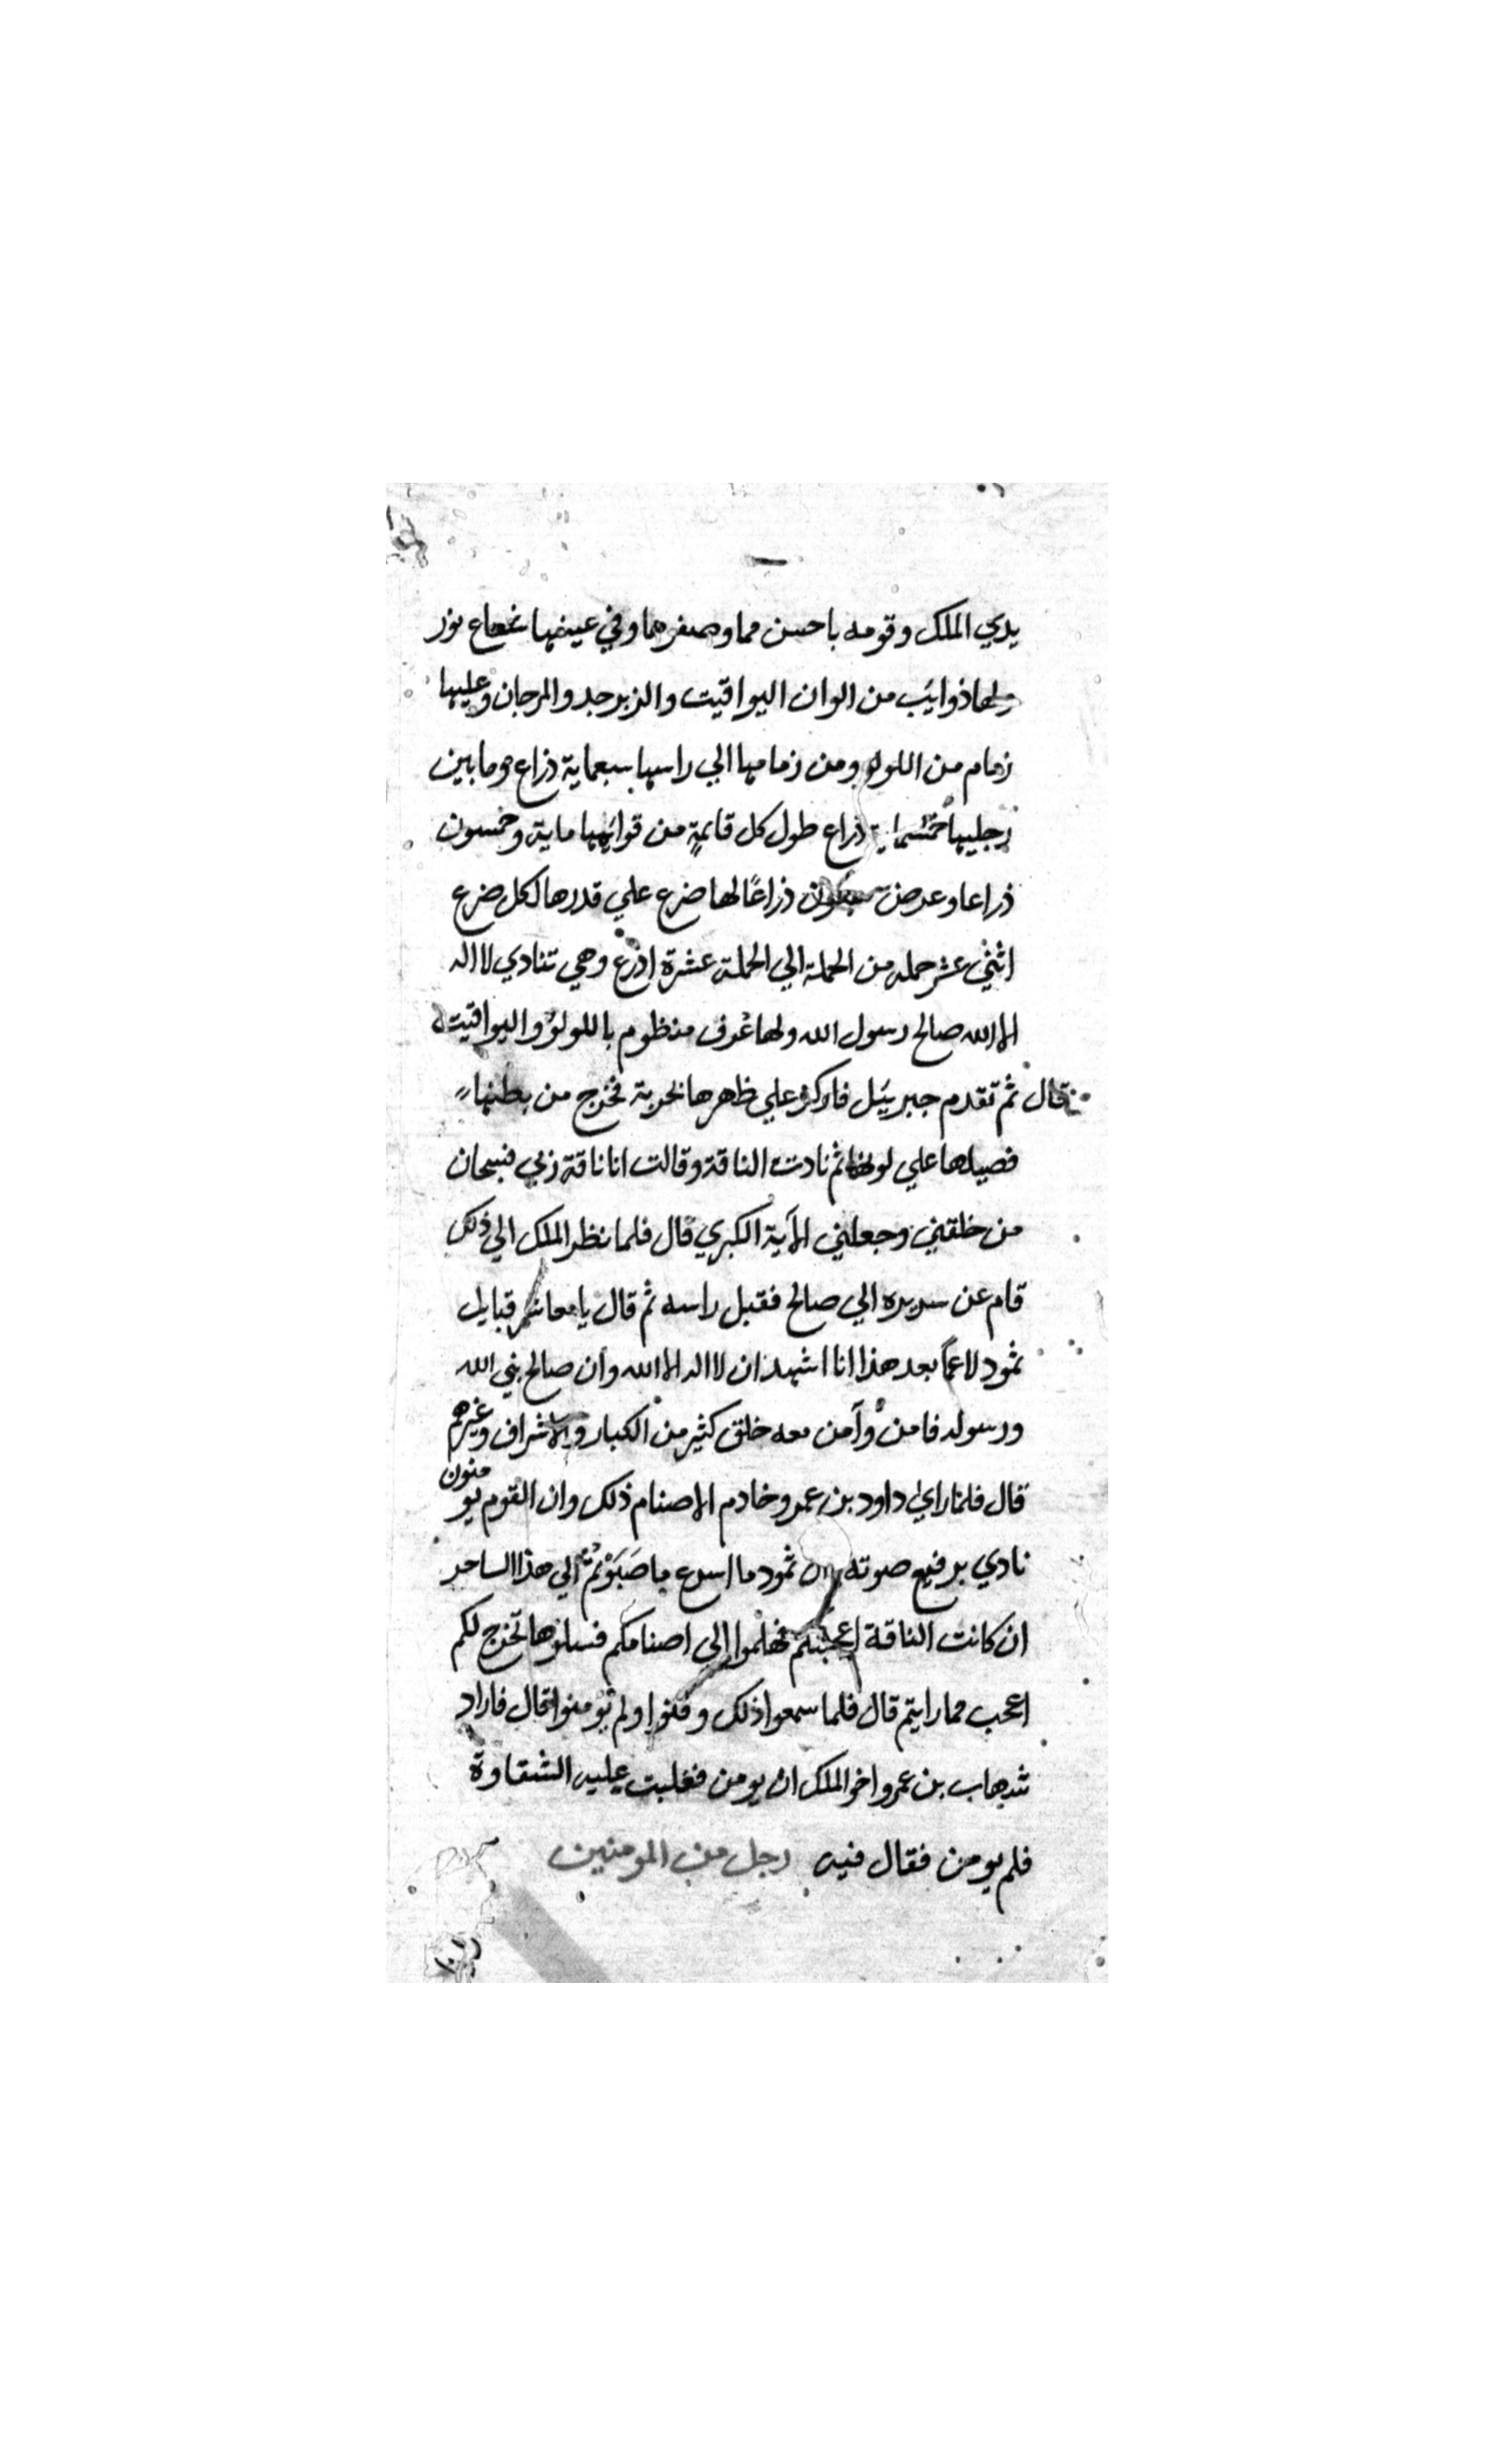 يدي الملك وقومه باحسن مما وصفوها وفي عينيها شعاع نور
ولها ذوايب من الوان اليواقيت والزبرجد والمرجان وعليها
زمام من اللولو ومن زمامها الي راسها سبعماية ذراع وما بين
رجليها خمسماية ذراع طول كل قايمةٍ من قوايمها ماية وخمسون
ذراعا وعرض ذراعًا لها ضرع علي قدرها لكل ضرع
اثني عشر حمله من الحملة الي الحملة عشرة اذرع وهي تنادي لا اله
الا الله صالح رسول الله ولها عُرف منظوم باللولوُ واليواقيت
قال ثم تقدم جبرييَل فاركز علي ظهرها بحربة فخرج من بطنها
فصيلها علي لونها ثم نادت الناقة وقالت انا ناقة ربي فسبحان
من خلقني وجعلني الآية الكبري قال فلما نظر الملك الي ذلك
قام عن سريره الي صالح فقبل راسه ثم قال يا معاشر قبايل
ثمود لا عماً بعد هذا انا اشهد ان لا اله الا الله وان صالح نبي الله
ورسوله فامن وآمن معه خلق كثير من الكبار والاشراف وغيرهم
قال فلما راي داود بن عمرو خادم الاصنام ذلك وان القوم يومنون
نادي برفيع صوته ثمود ما اسرع ما صَبَوْتُمْ الي هذا الساحر
ان كانت الناقة اعجبتكم فهلموا الي اصنامكم فسلوها تخرج لكم
اعجب مما رايتم قال فلما سمعوا ذلك وقفوا ولم يومنوا قال فاراد
شهاب بن عمرو اخو الملك ان يومن فغلبت عليه الشقاوة
فلم يومن فقال فيه رجل من المومنين